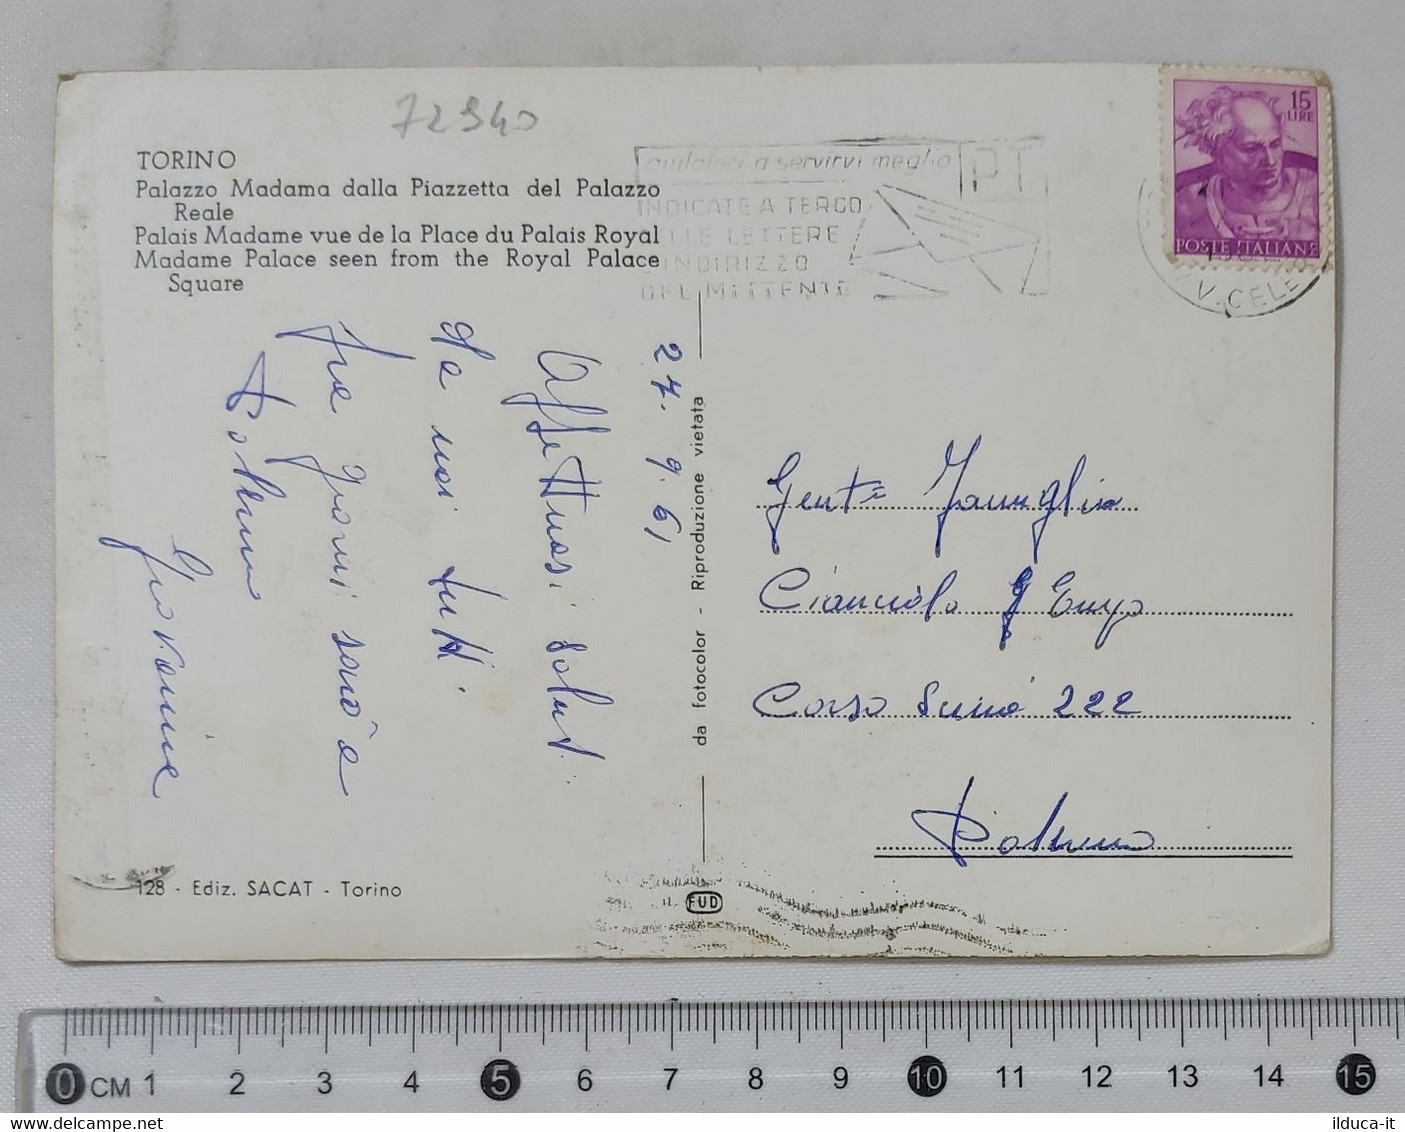 72940
TORINO
Palazzo Madama dalla Piazzetta del Palazzo
Reale
Palais Madame vue de la Place du Palais Royal
Madame Palace seen from the Royal Palace
Square
aiutateci a servirvi meglio
PT
INDICATE A TERGO
DELLE LETTERE
L'INDIRIZZO
DEL MITTENTE
15
LIRE
POSTE ITALIANE
V. CELE
27.9.61
Affettuosi salut
da noi tutti.
fra giorni sarò a
Palermo
Giovanni
da fotocolor - Riprodzione vietata
Gent Famiglia
Cianciolo Enzo
Corso 222
Palermo
128 - Ediz. SACAT - Torino
FUD
0 CM 1 2 3 4 5 6 7 8 9 10 11 12 13 14 15
www.delcampe.net
ilduca-it